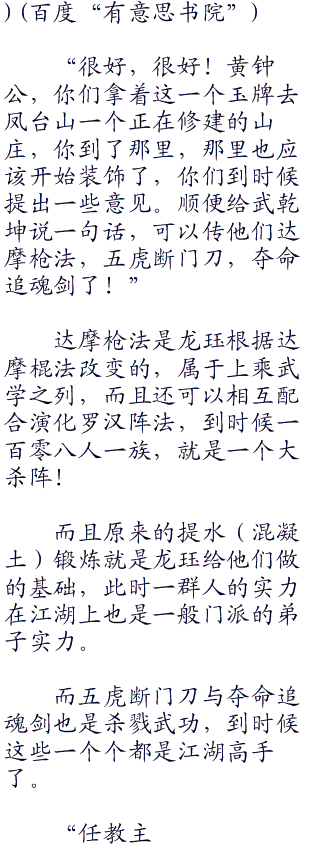 )(百度“有意思书院”)
“很好，很好！黄钟
公，你们拿着这一个玉牌去
凤台山一个正在修建的山
庄，你到了那里，那里也应
该开始装饰了，你们到时候
提出一些意见。顺便给武乾
坤说一句话，可以传他们达
摩枪法，五虎断门刀，夺命
追魂剑了！”
达摩枪法是龙珏根据达
摩棍法改变的，属于上乘武
学之列，而且还可以相互配
合演化罗汉阵法，到时候一
百零八人一族，就是一个大
杀阵！
而且原来的提水（混凝
土）锻炼就是龙珏给他们做
的基础，此时一群人的实力
在江湖上也是一般门派的弟
子实力。
而五虎断门刀与夺命追
魂剑也是杀戮武功，到时候
这些一个个都是江湖高手
了。
“任教主